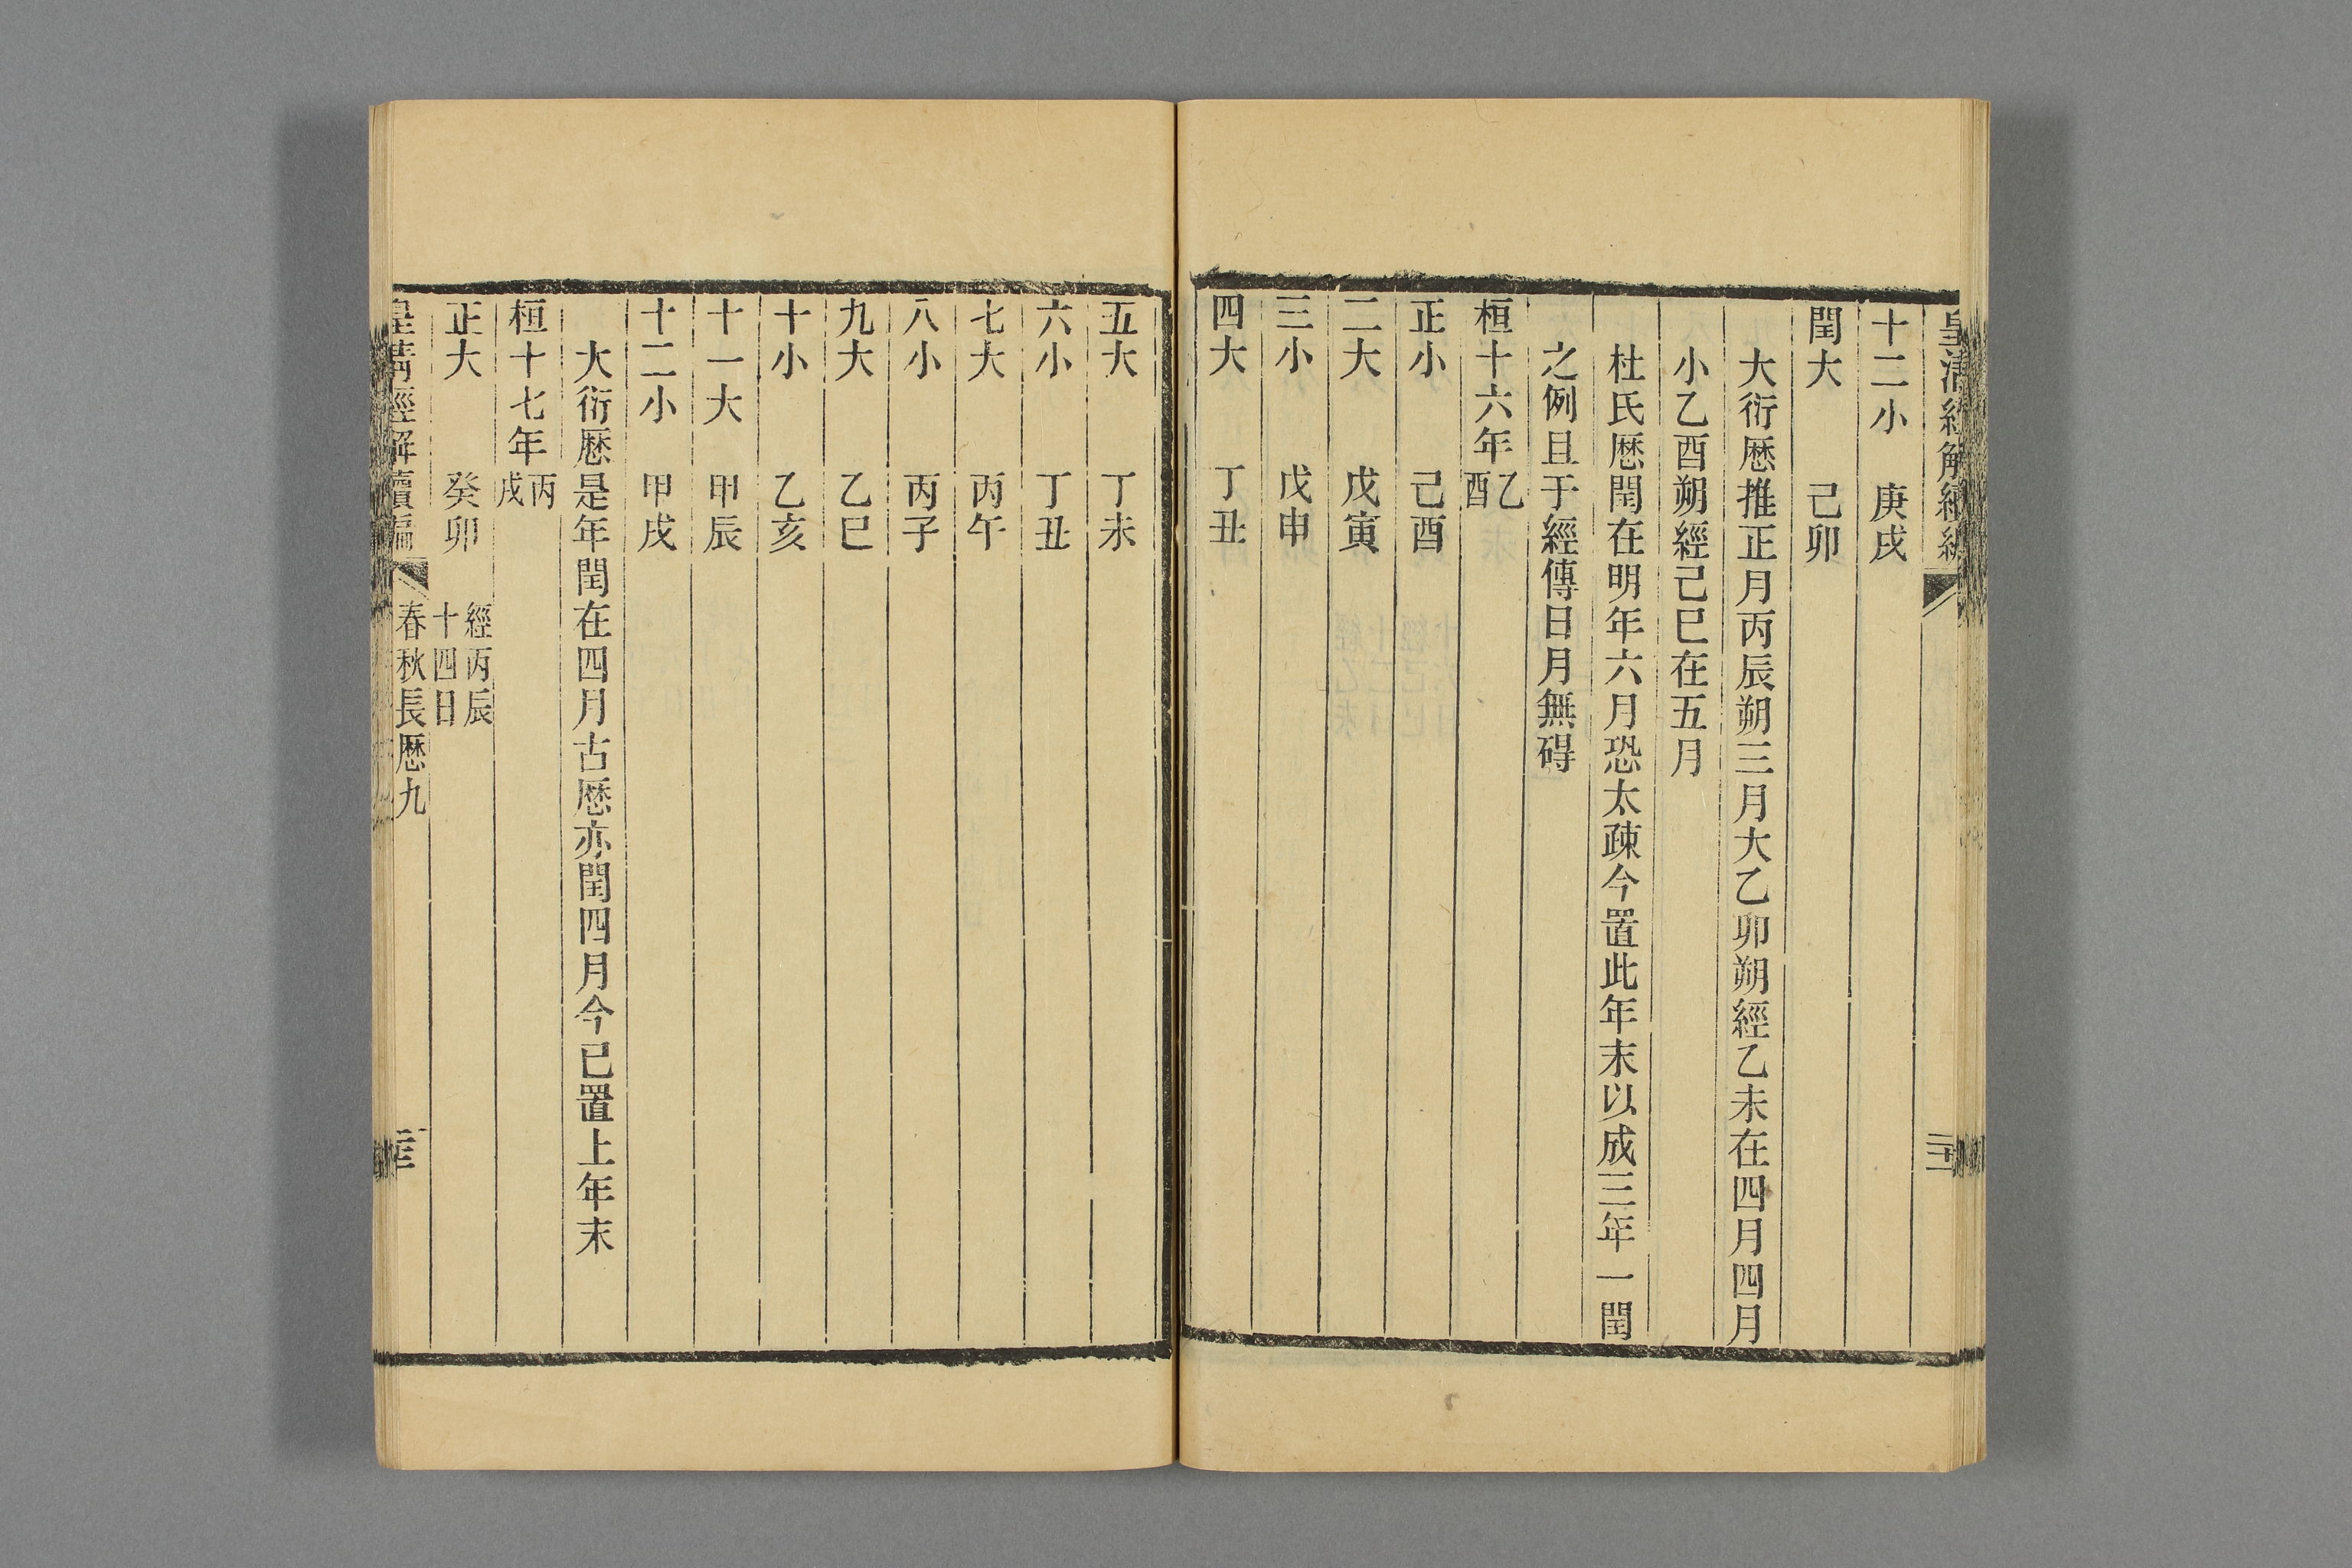 皇清經解續編
十二小　庚戌
閏大　己卯
大衍厯推正月丙辰朔三月大乙卯朔經乙未在四月四月
小乙酉朔經己巳在五月
杜氏厯閏在明年六月恐太疎今置此年末以成三年一閏
之例且于經傳日月無碍
桓十六年乙酉
正小　己酉
二大　戊寅
三小　戊申
四大　丁丑
五大　丁未
六小　丁丑
七大　丙午
八小　丙子
九大　乙巳
十小　乙亥
十一大　甲辰
十二小　甲戌
大衍厯是年閏在四月古厯亦閏四月今已置上年末
桓十七年丙戌
正大　癸卯　經丙辰十四日
皇清經解續編　春秋長厯九